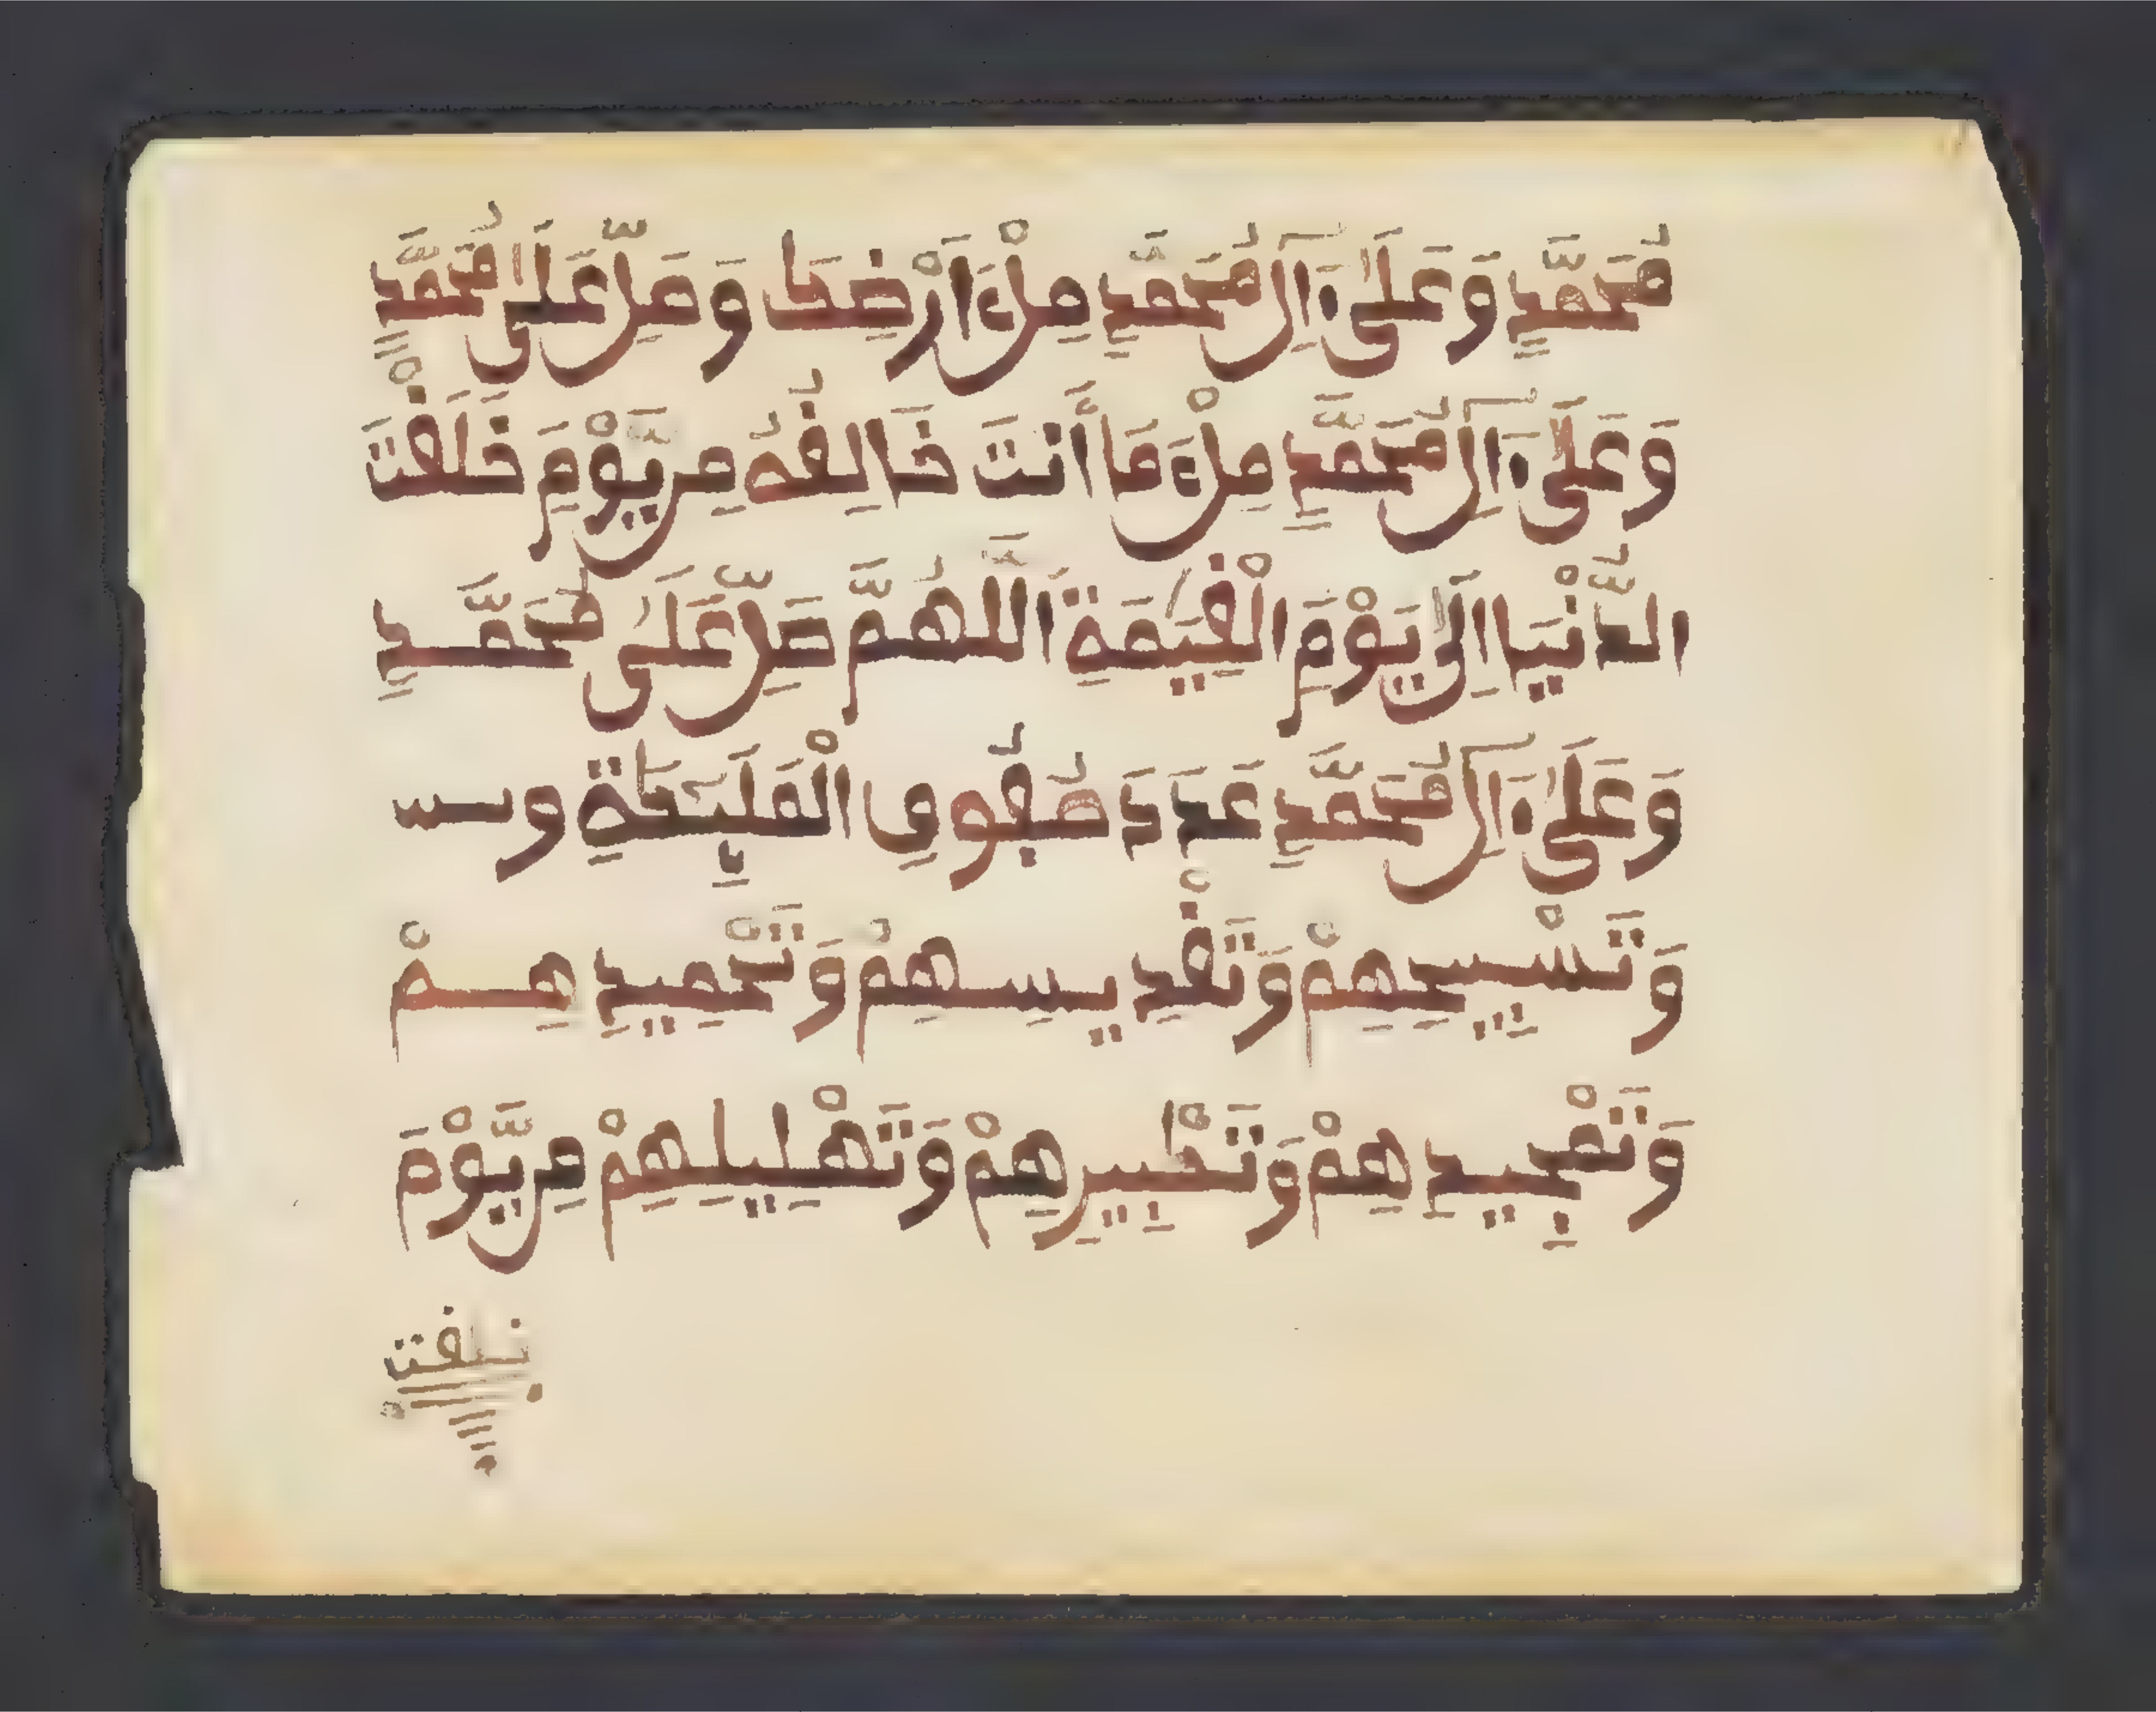 مُحَمَّدٍ وَعَلَىٰ ءَالِ مُحَمَّدٍ مِلْءَ اَرْضِكَا وَصَلِّ عَلَىٰ مُحَمَّدٍ
وَعَلَىٰ ءَالِ مُحَمَّدٍ مِلْءَ مَا أَنتَ خَالِقُهُ مِن يَّوْمَ خَلَقْتَ
الدُّنْيَا اِلَىٰ يَوْمِ الْقِيَٰمَةِ اَللَّهُمَّ صَلِّ عَلَىٰ مُحَمَّدٍ
وَعَلَىٰ ءَالِ مُحَمَّدٍ عَدَدَ صُفُوفِ الْمَلَٰٓئِكَةِ و
وَتَسْبِيحِهِمْ وَتَقْدِيسِهِمْ وَتَحْمِيدِهِمْ
وَتَمْجِيدِهِمْ وَتَكْبِيرِهِمْ وَتَهْلِيلِهِمْ مِن يَّوْمَ
خلقت